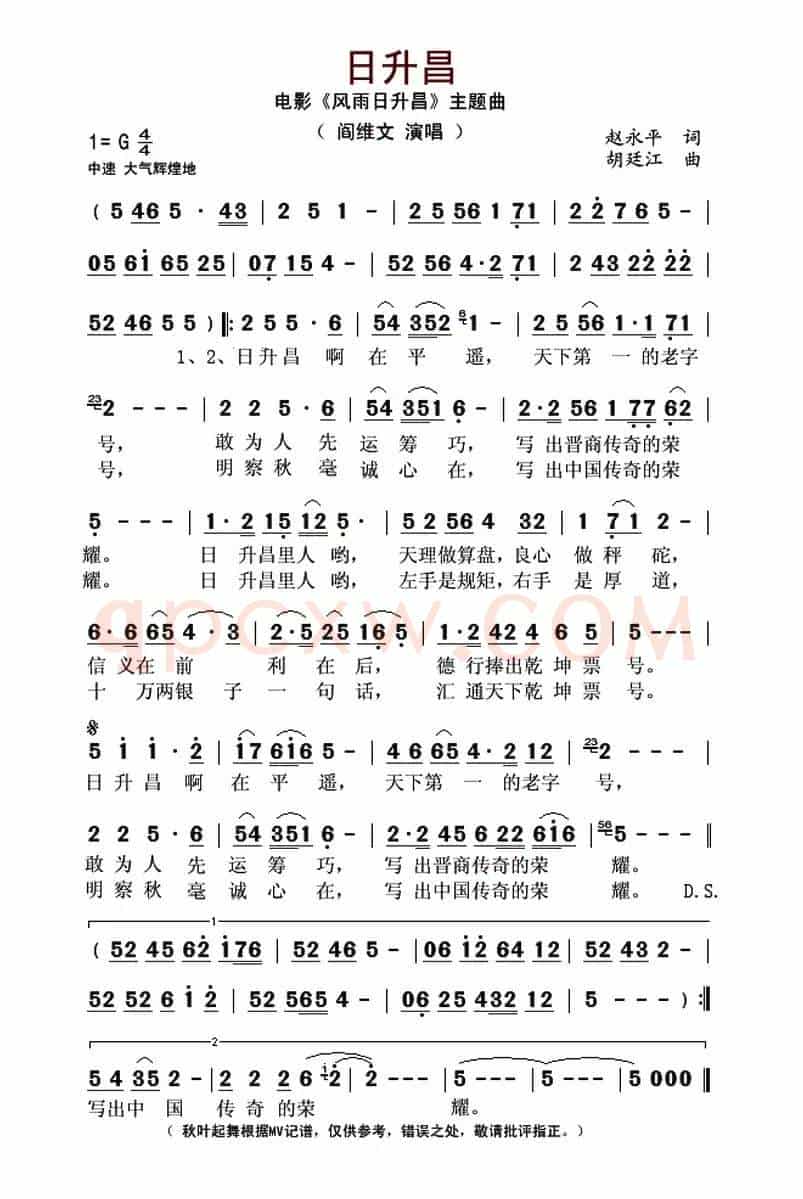 日升昌
电影《风雨日升昌》主题曲
（ 阎维文 演唱 ）
1= G 4/4
赵永平 词
中速 大气辉煌地
胡廷江 曲
( 5 46 5 · 43 | 2 5 1 - | 2 5 56 1 71 | 2 2 7 6 5 - |
05 61 65 25 | 07 15 4 - | 52 56 4·2 71 | 2 43 22 22 |
52 46 5 5 ) |: 2 5 5 · 6 | 54 352 6 1 - | 2 5 56 1·1 71 |
1、2、日升昌 啊 在 平 遥， 天下第 一的老字
23 2 - - - | 2 2 5 · 6 | 54 351 6 - | 2·2 56 177 62 |
号， 敢为人 先 运 筹 巧， 写 出晋商传奇的荣
号， 明察秋 毫 诚 心 在， 写 出中国传奇的荣
5 - - - | 1·2 15 12 5 · | 52 56 4 32 | 1 71 2 - |
耀。 日 升昌里人 哟， 天理做算盘，良心 做 秤 砣，
耀。 日 升昌里人 哟， 左手是规矩，右手 是 厚 道，
6·6 65 4 · 3 | 2·5 25 16 5 | 1·2 42 4 6 5 | 5 - - - |
信 义在 前 利 在 后， 德 行捧出乾 坤 票 号。
十 万两银 子 一 句 话， 汇 通天下乾 坤 票 号。
5 1 1 · 2 | 17 616 5 - | 4 6 65 4·2 12 | 23 2 - - - |
日 升 昌 啊 在 平 遥， 天下第 一 的老字 号，
2 2 5 · 6 | 54 351 6 - | 2·2 45 6 22 616 | 56 5 - - ‖
敢 为 人 先 运 筹 巧， 写 出晋商传奇的荣 耀。
明 察 秋 毫 诚 心 在， 写 出中国传奇的荣 耀。 D.S.
1
( 52 45 62 176 | 52 46 5 - | 06 12 64 12 | 52 43 2 - |
52 52 6 1 2 | 52 565 4 - | 06 25 432 12 | 5 - - ) :‖
2
5 4 35 2 - | 2 2 6 1 2 | 2 - - - | 5 - - - | 5 - - - | 5 000 ‖
写出中 国 传 奇 的荣 耀。
（ 秋叶起舞根据MV记谱，仅供参考，错误之处，敬请批评指正。）
qpcxw.COM